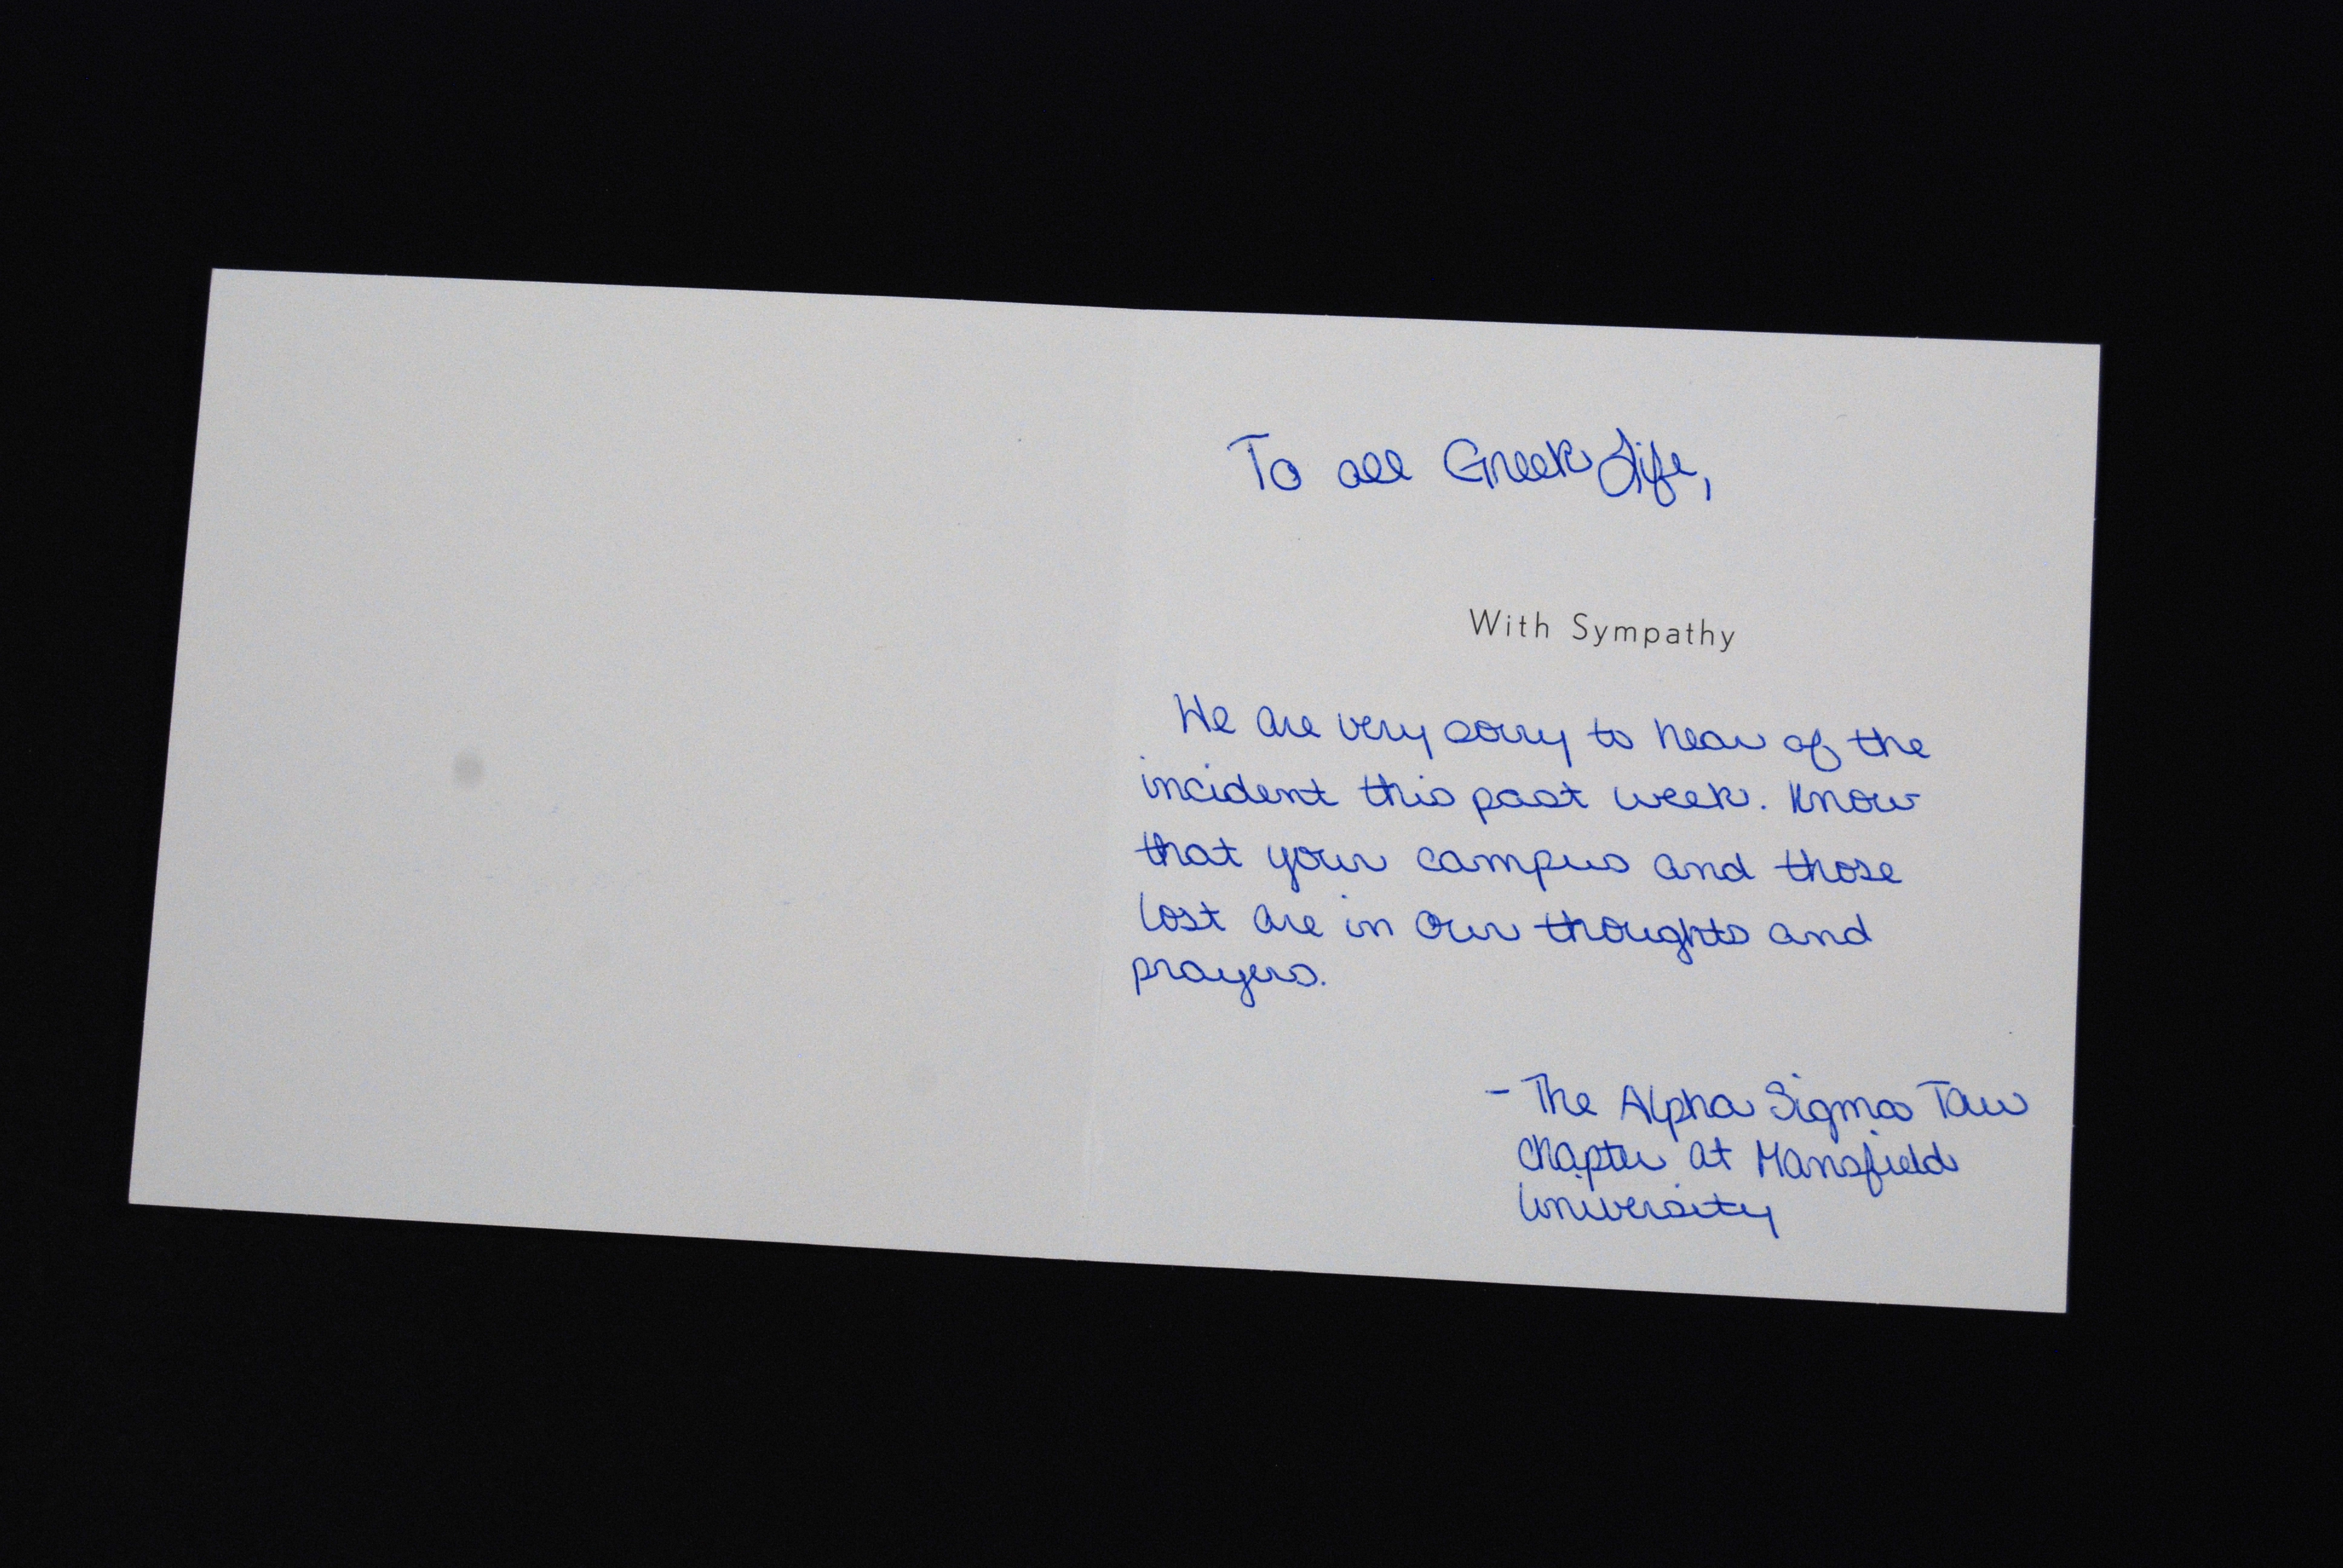 To all Greek Life,
With Sympathy
We are very sorry to hear of the
incident this past week. Know
that your campus and those
lost are in our thoughts and
prayers.
- The Alpha Sigma Tau
chapter at Mansfield
University